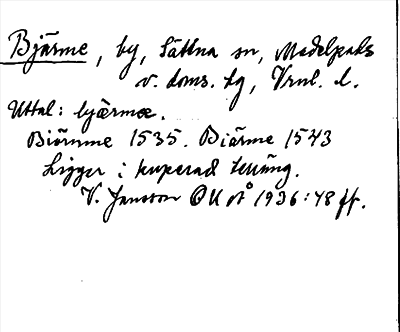 Bjärme, by, Sättna sn, Medelpads
v. doms. tg, Vrnl. l.
Uttal: bjærmæ.
Biörmme 1535. Biärme 1543
Ligger i kuperad terräng.
V. Jansson OUÅ 1936:48 ff.